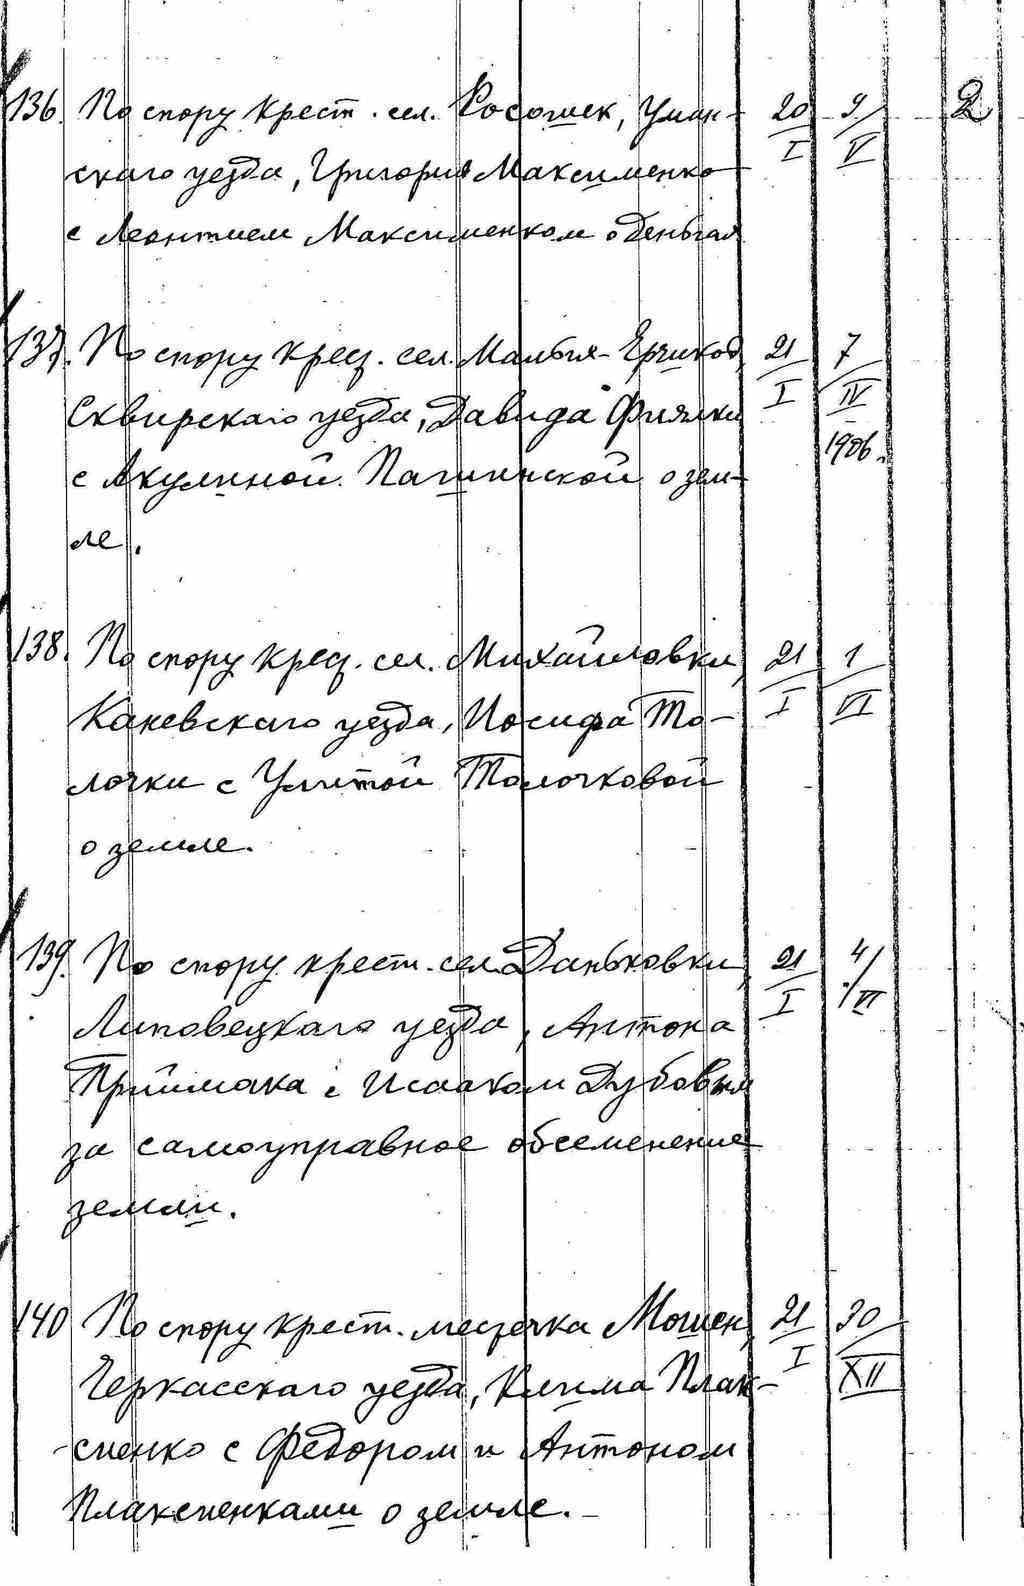 136. По спору крест. сел. Росошек, Уман- 20/I 9/V 2
скаго уезда, Григория Максименко
с Леонтием Максименком о деньгах
137. По спору крест. сел. Малых-Ерчиков, 21/I 7/IV 1906 г.
Сквирскаго уезда, Давида Фиялки
с Акулиной Пашинской о зем-
ле.
138. По спору крест. сел. Михайловки, 21/I 1/VI
Каневскаго уезда, Иосифа То-
лочки с Улитой Толочковой
о земле.
139. По спору крест. сел. Даньковки, 21/I 4/VI
Липовецкаго уезда, Антона
Приймака с Исааком Дубовым
за самоуправное обсеменение
земли.
140 По спору крест. местечка Мошен, 21/I 30/XII
Черкасскаго уезда, Клима Плак-
сиенко с Федором и Антоном
Плаксиенками о земле.